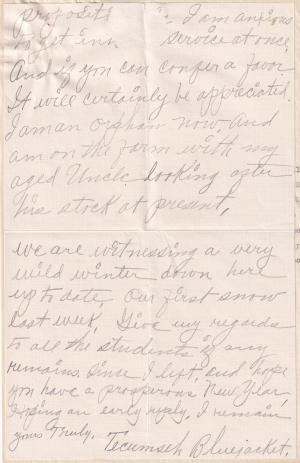 proposit . I am anxious
to get in service at once,
And if you can confer a favor
It will certainly be appreciated.
I am an Orphan now, and
am on the farm with my
aged Uncle looking after
his stock at present,
we are witnessing a very
mild winter down here
up to date, Our first snow
last week, Give my regards
to all the students if any
remains since I left, and hope
you have a prosperous New Year,
Hoping an early reply, I remain
yours Truly, Tecumseh Bluejacket.